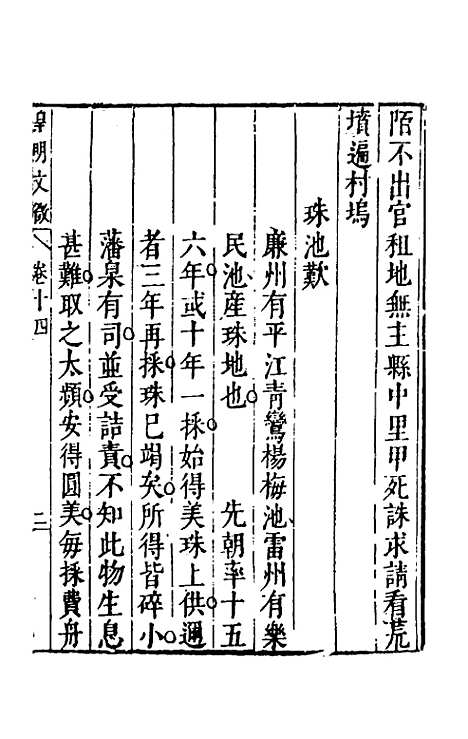 陌不出官租地無主縣中里甲死誅求請看荒
墳遍村塢
珠池歎
廉州有平江青鶯楊梅池雷州有樂
民池產珠地也　先朝率十五
六年或十年一採始得美珠上供邇
者三年再採珠已竭矣所得皆碎小
藩臬有司並受詰責不知此物生息
甚難取之太頻安得圓美每採費舟
皇明文徵　卷十四　二